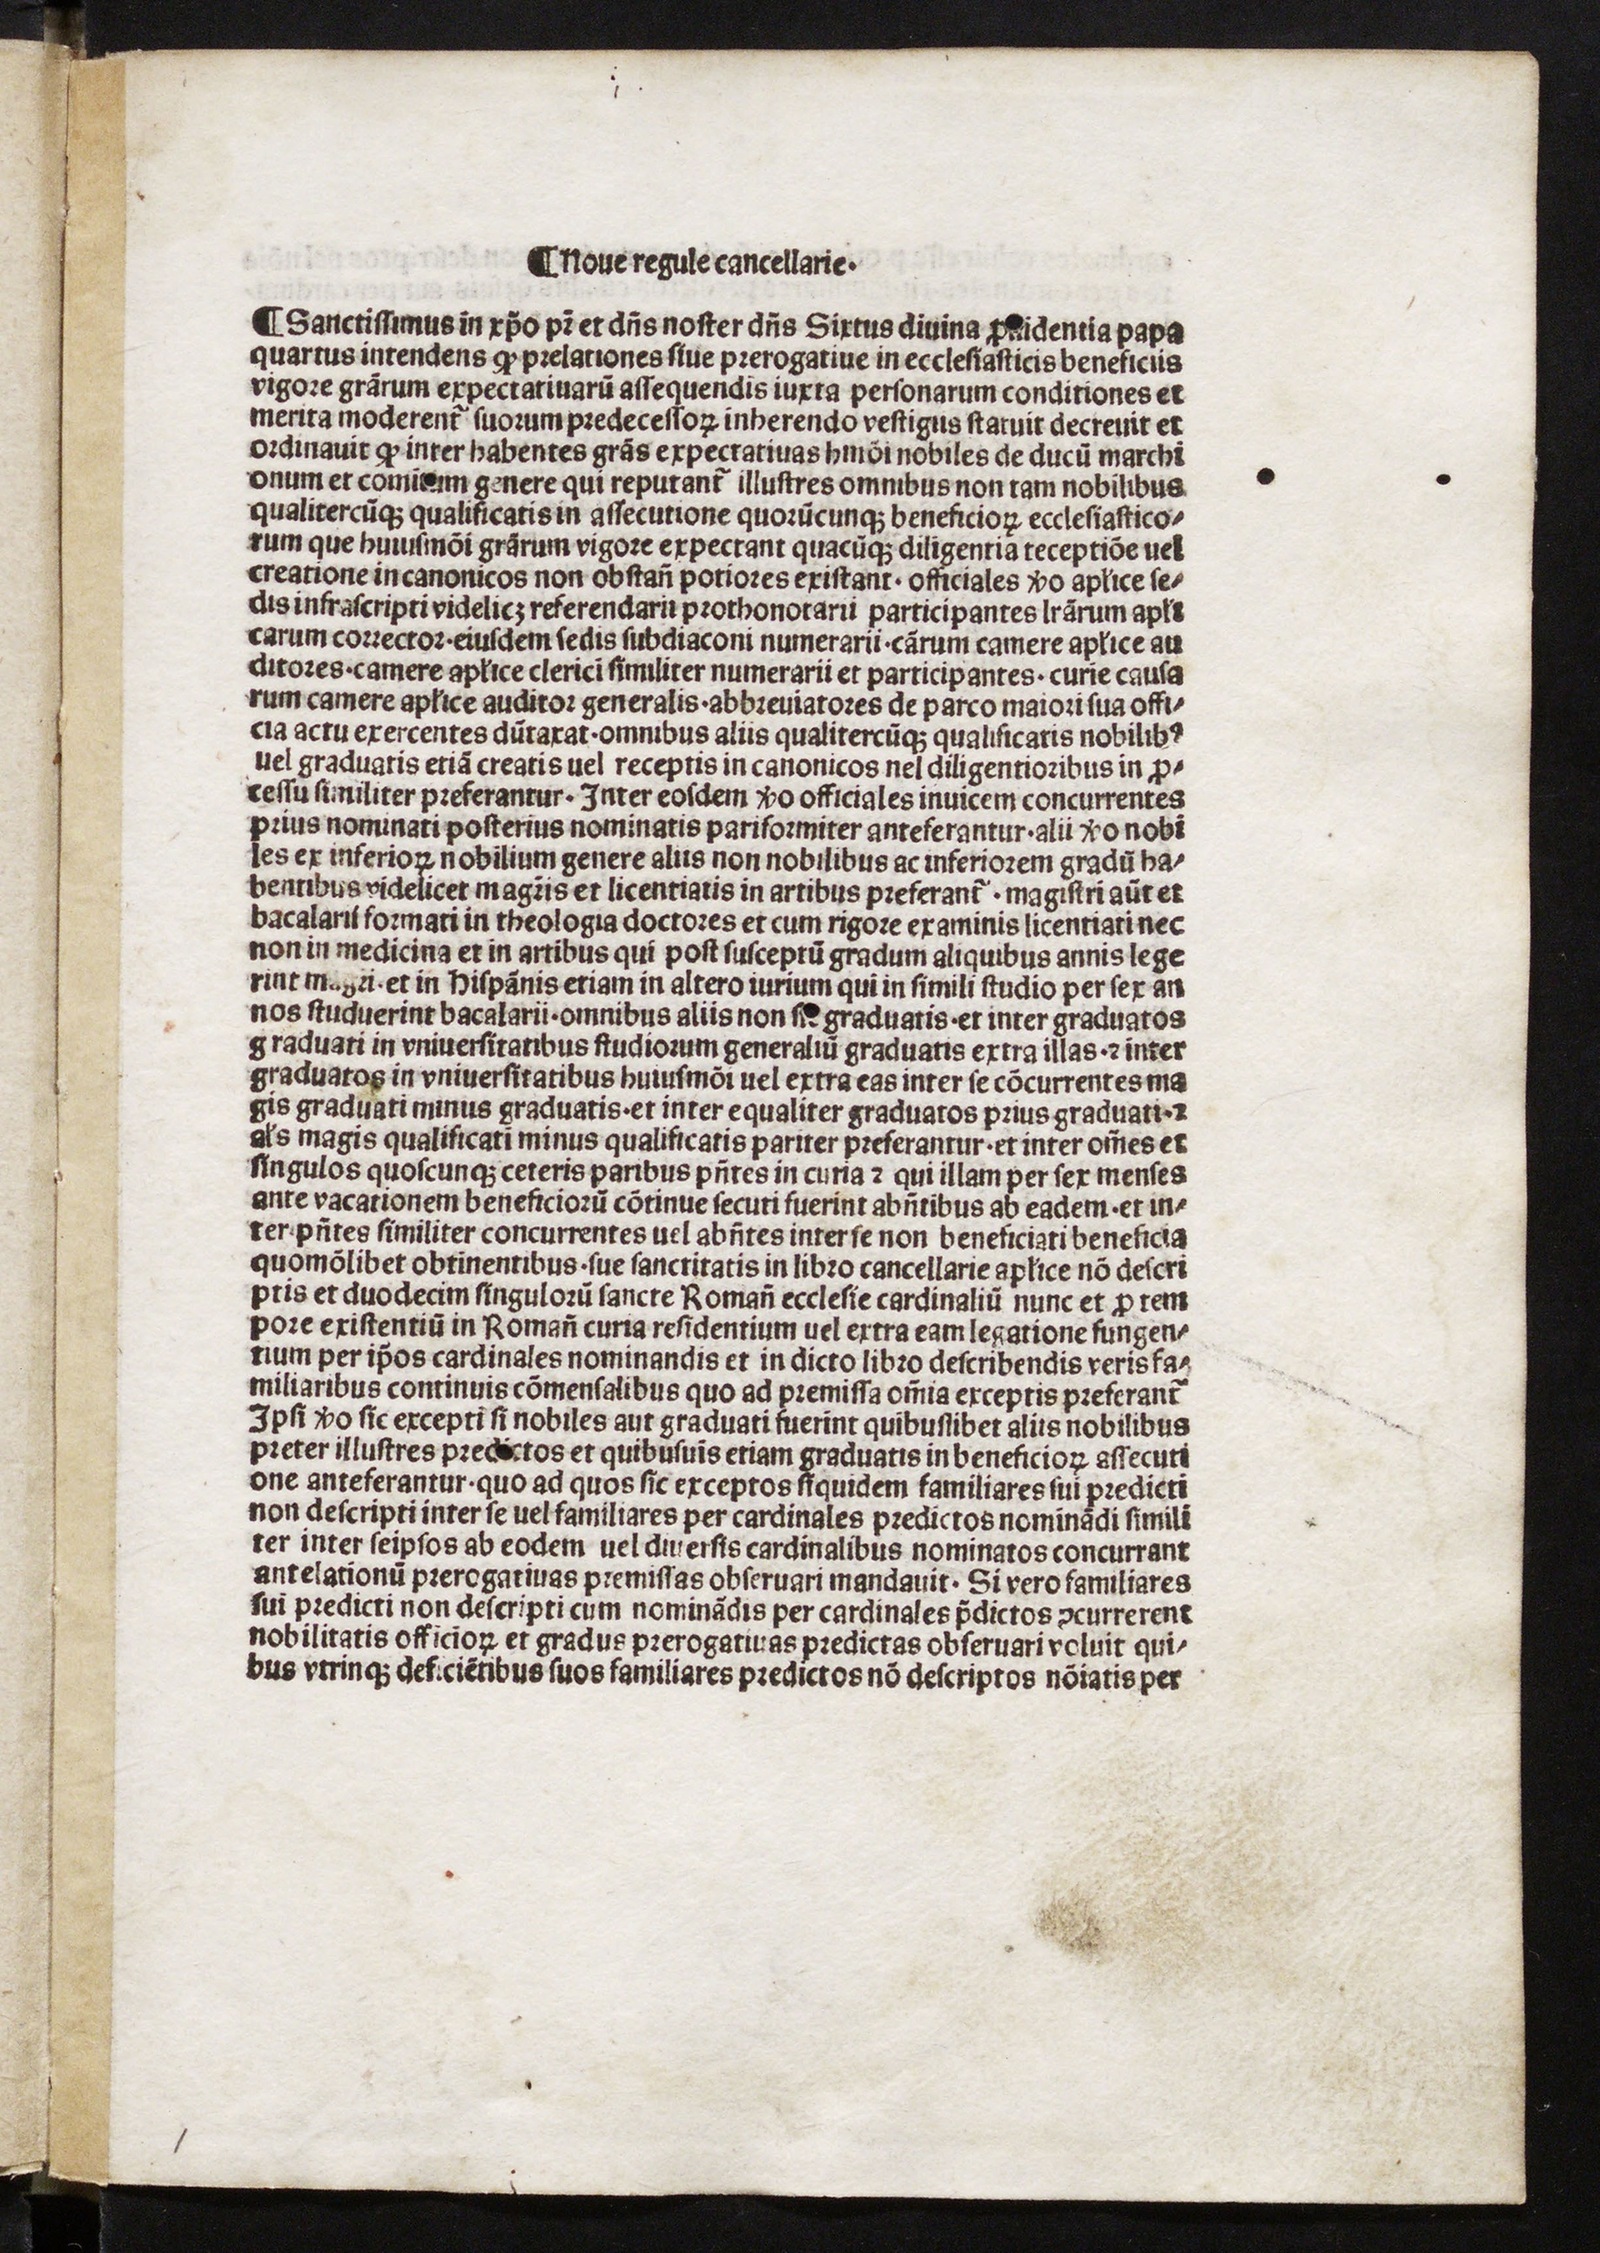 ¶ Noue regule cancellarie·
¶ Sanctiſſimus in xp̄o pr̄ et dn̄s noſter dn̄s Sixtus diuina ꝓuidentia papa
quartus intendens ꝙ prelationes ſiue prerogatiue in eccleſiaſticis beneficiis
vigore grārum expectatiuarū aſſequendis iuxta perſonarum conditiones et
merita moderent᷑ ſuorum predeceſſoꝝ inherendo veſtigiis ſtatuit decreuit et
ordinauit ꝙ inter habentes grās expectatiuas hmōi nobiles de ducū marchi
onum et comitum genere qui reputant᷑ illuſtres omnibus non tam nobilibus
qualitercūqꝫ qualificatis in aſſecutione quorūcunqꝫ beneficioꝝ eccleſiaſtico⸗
rum que huiuſmōi grārum vigore expectant quacūqꝫ diligentia receptiōe uel
creatione in canonicos non obſtan̄ potiores exiſtant· officiales v̾o apl̄ice ſe⸗
dis infraſcripti videlicꝫ referendarii prothonotarii participantes lrārum apl̄i
carum corrector·eiuſdem ſedis ſubdiaconi numerarii·cārum camere apl̄ice au
ditores·camere apl̄ice clerici ſimiliter numerarii et participantes· curie cauſa
rum camere apl̄ice auditor generalis·abbreuiatores de parco maiori ſua offi⸗
cia actu exercentes dūtaxat·omnibus aliis qualitercūqꝫ qualificatis nobilibꝰ
uel graduatis etiā creatis uel receptis in canonicos nel diligentioribus in ꝓ⸗
ceſſu ſimiliter preferantur· Inter eoſdem v̾o officiales inuicem concurrentes
prius nominati poſterius nominatis pariformiter anteferantur·alii v̾o nobi
les ex inferioꝝ nobilium genere aliis non nobilibus ac inferiorem gradū ha⸗
bentibus videlicet magr̄is et licentiatis in artibus preferant᷑ · magiſtri aūt et
bacalarii formati in theologia doctores et cum rigore examinis licentiati nec
non in medicina et in artibus qui poſt ſuſceptū gradum aliquibus annis lege
rint magr̄i·et in Hiſpānis etiam in altero iurium qui in ſimili ſtudio per ſex an
nos ſtuduerint bacalarii·omnibus aliis non ſic graduatis·et inter graduatos
g raduati in vniuerſitatibus ſtudiorum generaliū graduatis extra illas·⁊ inter
graduatos in vniuerſitatibus huiuſmōi uel extra eas inter ſe cōcurrentes ma
gis graduati minus graduatis·et inter equaliter graduatos prius graduati·⁊
al̄s magis qualificati minus qualificatis pariter preferantur·et inter om̄es et
ſingulos quoſcunqꝫ ceteris paribus pn̄tes in curia ⁊ qui illam per ſex menſes
ante vacationem beneficiorū cōtinue ſecuti fuerint abn̄tibus ab eadem·et in⸗
ter pn̄tes ſimiliter concurrentes uel abn̄tes inter ſe non beneficiati beneficia
quomōlibet obtinentibus·ſue ſanctitatis in libro cancellarie apl̄ice nō deſcri
ptis et duodecim ſingulorū ſancte Roman̄ eccleſie cardinaliū nunc et ꝓ tem
pore exiſtentiū in Roman̄ curia reſidentium uel extra eam legatione fungen⸗
tium per ip̄os cardinales nominandis et in dicto libro deſcribendis veris fa⸗
miliaribus continuis cōmenſalibus quo ad premiſſa om̄ia exceptis preferant᷑
Ipſi v̾o ſic excepti ſi nobiles aut graduati fuerint quibuſlibet aliis nobilibus
preter illuſtres predictos et quibuſuis etiam graduatis in beneficioꝝ aſſecuti
one anteferantur·quo ad quos ſic exceptos ſiquidem familiares ſui predicti
non deſcripti inter ſe uel familiares per cardinales predictos nominādi ſimili
ter inter ſeipſos ab eodem uel diuerſis cardinalibus nominatos concurrant
antelationū prerogatiuas premiſſas obſeruari mandauit· Si vero familiares
ſui predicti non deſcripti cum nominādis per cardinales p̄dictos ꝯcurrerent
nobilitatis officioꝝ et gradus prerogatiuas predictas obſeruari voluit qui⸗
bus vtrinqꝫ deficiētibus ſuos familiares predictos nō deſcriptos nōiatis per